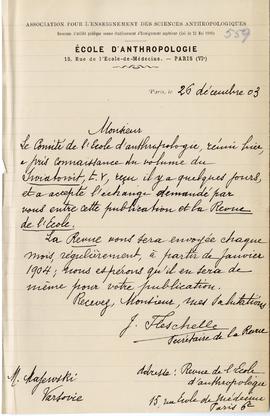 559
ASSOCIATION POUR L'ENSEIGNEMENT DES SCIENCES ANTHROPOLOGIQUES
Reconnue d'utilité publique comme établissement d'Enseignement supérieur (loi du 22 Mai 1889)
ÉCOLE D'ANTHROPOLOGIE
15, Rue de l'École-de-Médecine. — PARIS (VIe)
Paris, le 26 décembre 03
Monsieur
Le Comité de l'École d'anthropologie, réuni hier,
a pris connaissance du volume du
Swiatowit, t. V, reçu il y a quelques jours,
et a accepté l'échange demandé par
vous entre cette publication et la Revue
de l'École.
La Revue vous sera envoyée chaque
mois, régulièrement, à partir de janvier
1904; nous espérons qu'il en sera de
même pour votre publication.
Recevez, Monsieur, mes salutations
J. Fleschelle
Secrétaire de la Revue
M. Majewski
Varsovie
Adresse: Revue de l'École
d'anthropologie
15 rue École de Médecine
Paris 6e